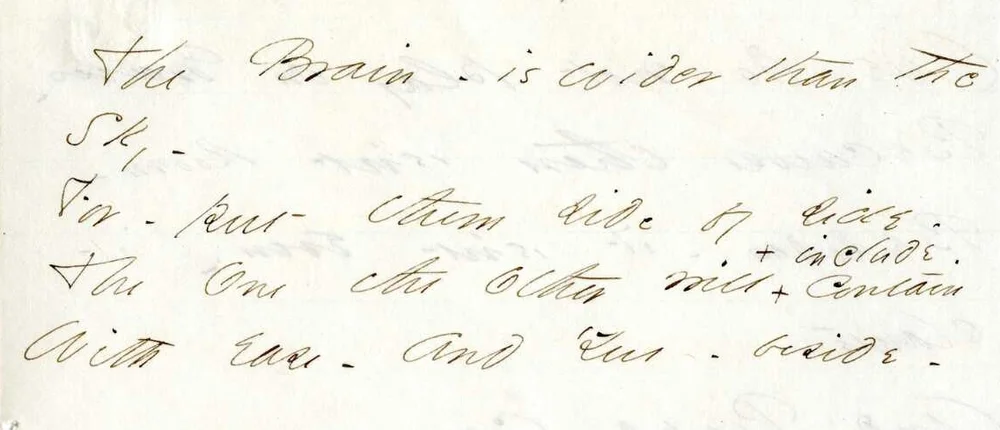 The Brain - is wider than the
Sky -
For - put them side by side -
+ include.
The One the Other will + Contain
With ease - and You - beside -